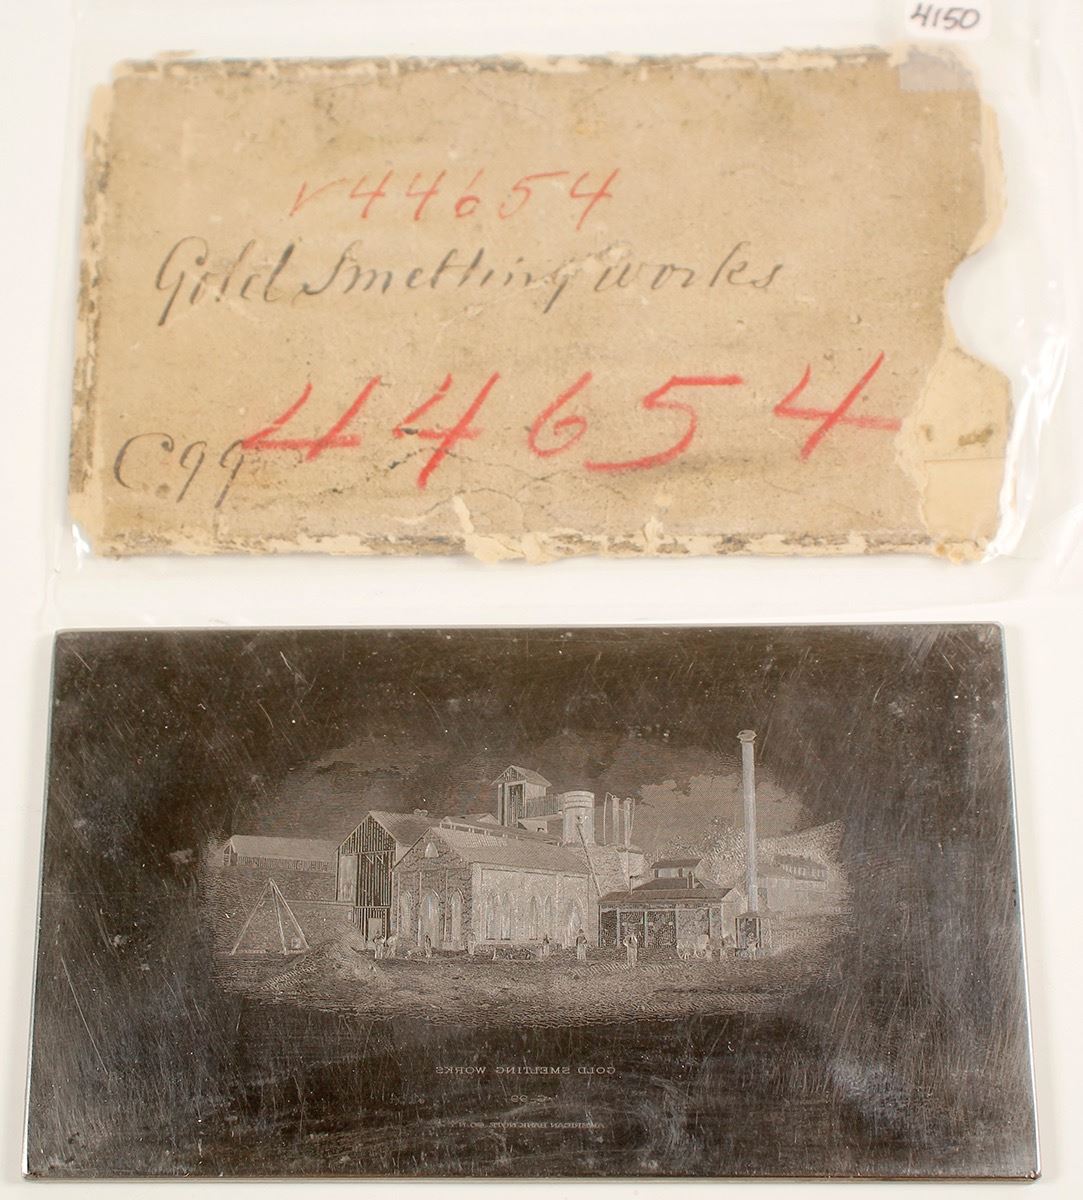 4150
V44654
Gold Smelting works
C99 44654
GOLD SMELTING WORKS
C-99
AMERICAN BANK NOTE CO. N.Y.